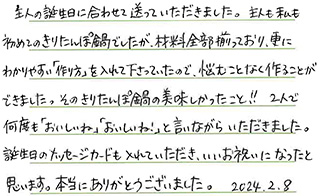 主人の誕生日に合わせて送っていただきました。主人も私も
初めてのきりたんぽ鍋でしたが、材料全部揃っており、更に
わかりやすい「作り方」を入れて下さっていたので、悩むことなく作ることが
できました。そのきりたんぽ鍋の美味しかったこと!! 2人で
何度も「おいしいね」「おいしいね!」と言いながらいただきました。
誕生日のメッセージカードも入れていただき、いいお祝いになったと
思います。本当にありがとうございました。 2024.2.8